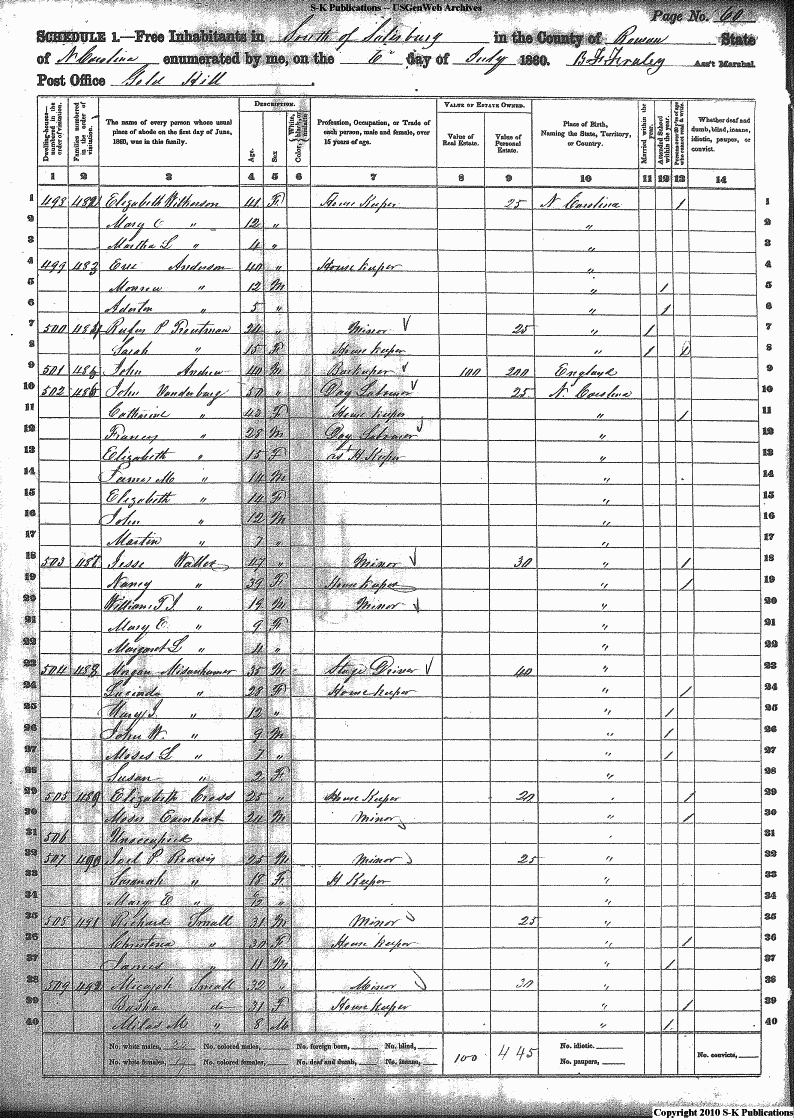 S-K Publications -- USGenWeb Archives
Page No. 60
SCHEDULE 1.—Free Inhabitants in South of Salisbury in the County of Rowan State
of N Carolina enumerated by me, on the 6" day of July 1860. Ass't Marshal.
Post Office Gold Hill
Dwelling-houses—numbered in the order of visitation. Families numbered in the order of visitation. The name of every person whose usual place of abode on the first day of June, 1860, was in this family. DESCRIPTION. Age. Sex. Color, Profession, Occupation, or Trade of each person, male and female, over 15 years of age. VALUE OF ESTATE OWNED. Value of Real Estate. Value of Personal Estate. Place of Birth, Naming the State, Territory, or Country. Married within the year. Attended School within the year. Whether deaf and dumb, blind, insane, idiotic, pauper, or convict.
1 2 3 4 5 6 7 8 9 10 11 12 13 14
1 498 482 Elizabeth Wilkerson 41 F House Keeper 25 N Carolina / 1
2 Mary C " 12 " " 2
3 Martha L " 4 " " 3
4 499 483 Eve Anderson 40 " House Keeper " 4
5 Monroe " 12 M " / 5
6 " 5 " " / 6
7 500 484 Rufus P Troutman 24 " Minor 25 " / 7
8 Sarah " 15 F House Keeper " / / 8
9 501 485 John Andrew 40 M 100 200 England 9
10 502 486 John Vanderburg 50 " Day Laborer 25 N Carolina 10
11 Catharine " 43 F House Keeper " / 11
12 Francis " 28 M Day Laborer " 12
13 Elizabeth " 15 F as H Keeper " 13
14 James M " 14 M " 14
15 Elizabeth " 14 F " 15
16 John " 12 M " 16
17 Martin " 7 " " 17
18 503 487 Jesse Waller 47 " Minor 30 " / 18
19 Nancy " 39 F House Keeper " / 19
20 William T J " 19 M Minor " 20
21 Mary E " 9 F " 21
22 Margaret L " 4 " " 22
23 504 488 Morgan Misenhamer 35 M Stage Driver 40 " 23
24 Lucinda " 28 F House Keeper " / 24
25 Mary J. " 12 " " / 25
26 John W. " 9 M " / 26
27 Moses L " 7 " " / 27
28 Susan " 2 F " 28
29 505 489 Elizabeth Cress 25 " House Keeper 20 " / 29
30 Moses Earnhart 24 M Minor " / 30
31 506 Unoccupied 31
32 507 490 Joel P Reavis 25 M Minor 25 " 32
33 Susanah " 18 F H Keeper " 33
34 Mary E " " " 34
35 508 491 Richard Small 31 M Minor 25 " 35
36 Christena " 30 F House Keeper " / 36
37 James " 11 M " / 37
38 509 492 Micajah Small 32 " Minor 30 " 38
39 do 31 F House Keeper " / 39
40 Milas M " 8 M " / 40
No. white males, No. colored males, No. foreign born, No. blind, 100 445 No. idiotic. No. convicts,
No. white females, No. colored females, No. deaf and dumb, No. insane, No. paupers,
Copyright 2010 S-K Publications